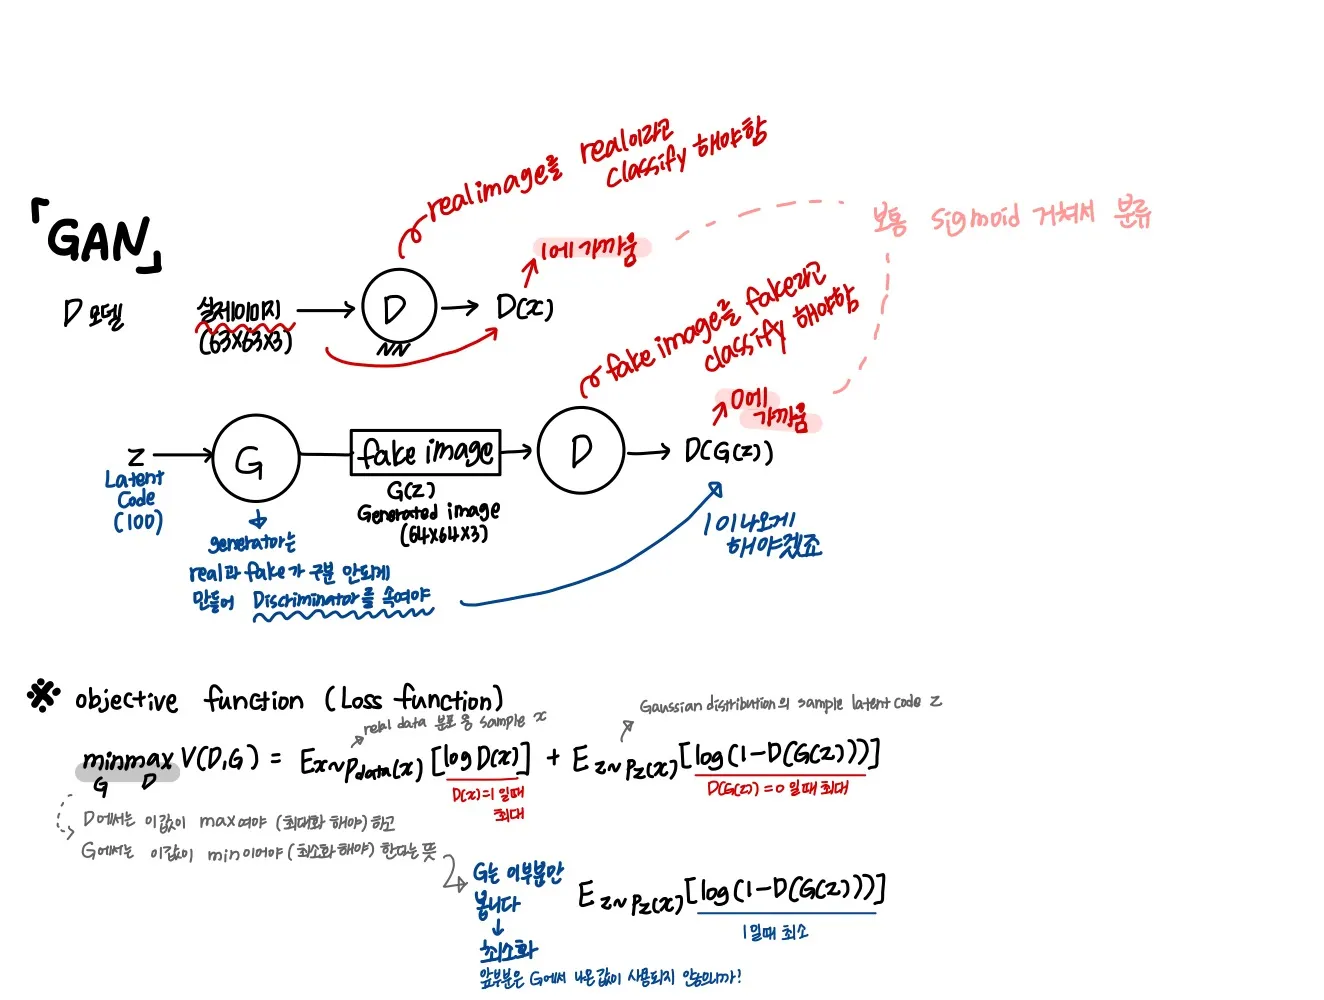 「GAN」
real image를 real이라고
classify 해야함
보통 sigmoid 거쳐서 분류
1에 가까움
D 모델
실제이미지
(63×63×3)
D
NN
D(x)
fake image를 fake라고
classify 해야함
0에
가까움
z
Latent
Code
(100)
G
fake image
G(z)
Generated image
(64×64×3)
D
D(G(z))
1이 나오게
해야겠죠
generator는
real과 fake가 구분 안되게
만들어 Discriminator를 속여야
※ objective function (Loss function)
real data 분포 중 sample x
Gaussian distribution의 sample latent code z
min max V(D,G) = E x~Pdata(x) [log D(x)] + E z~Pz(x) [log(1-D(G(z)))]
G D
D(x)=1 일때
최대
D(G(z))=0 일때 최대
D에서는 이값이 max여야 (최대화 해야) 하고
G에서는 이값이 min이어야 (최소화 해야) 한다는 뜻
G는 이부분만
봅니다
최소화
앞부분은 G에서 나온값이 사용되지 않으니까!
E z~Pz(x) [log(1-D(G(z)))]
1일때 최소